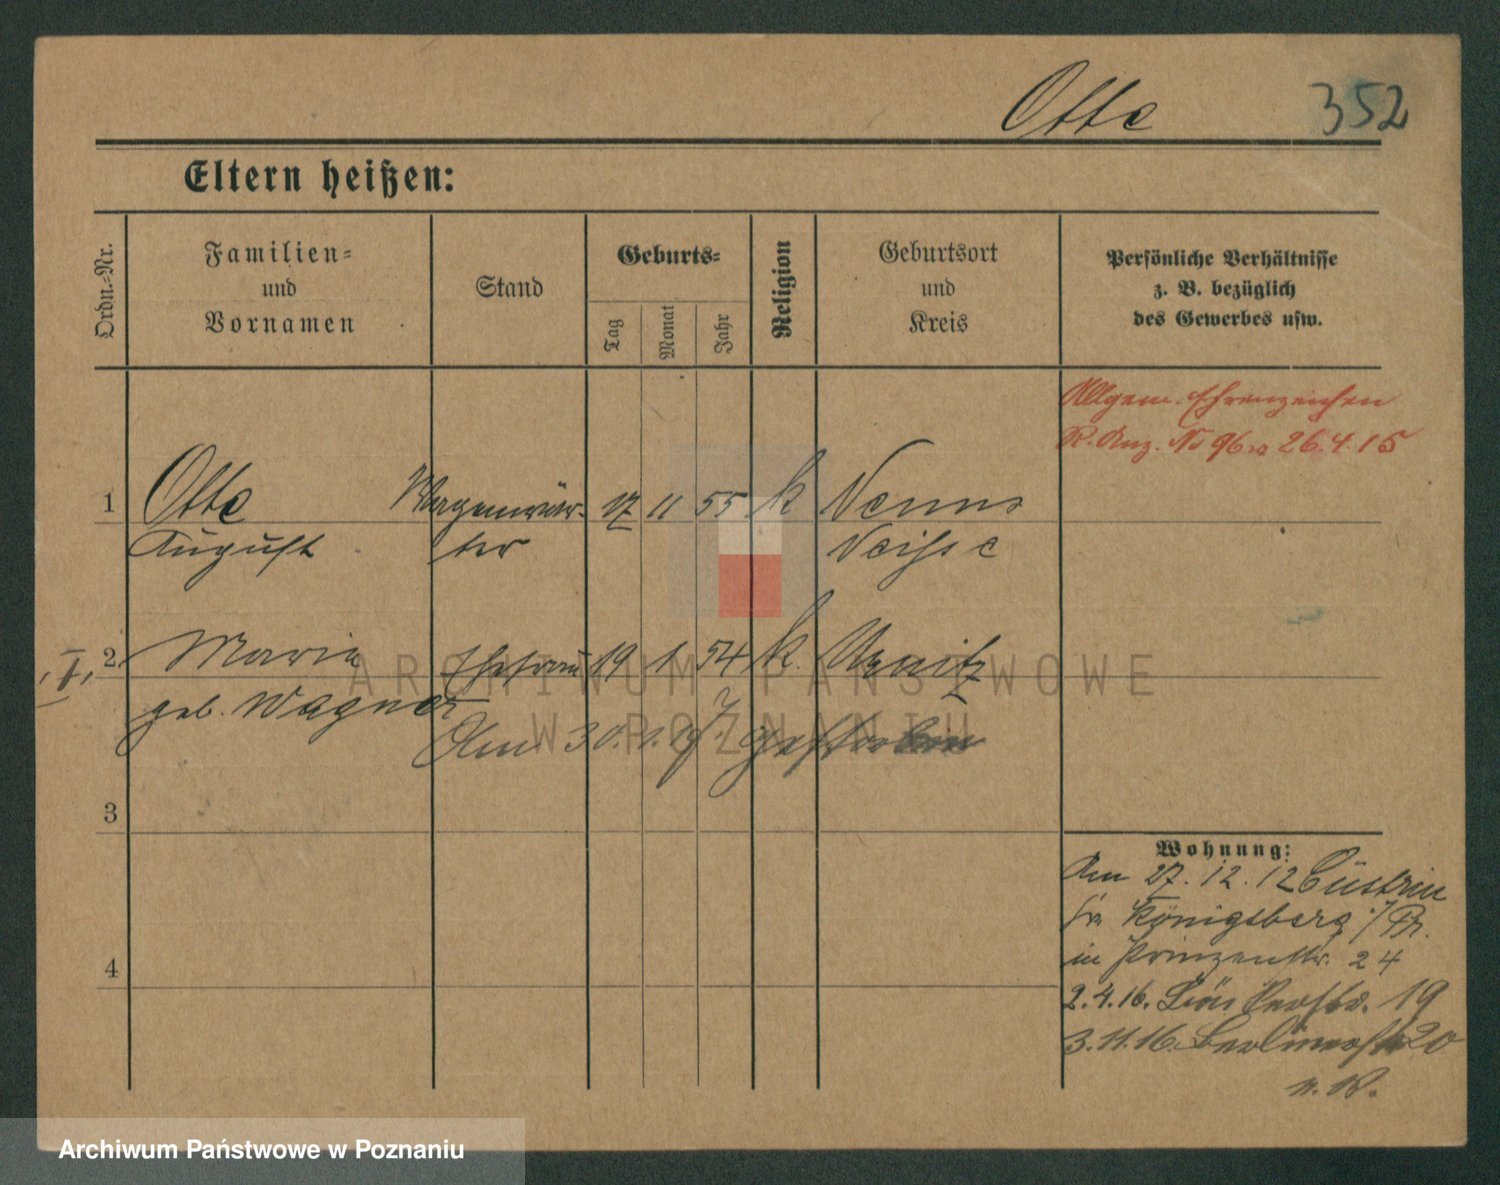 Otto 352
Eltern heißen:
Ordn.-Nr.
Familien-
und
Vornamen
Stand
Geburts-
Tag
Monat
Jahr
Religion
Geburtsort
und
Kreis
Persönliche Verhältnisse
z. B. bezüglich
des Gewerbes usw.
Allgem. Ehrenzeichen
R. Anz. No 96 v 26.4.15
1 Otto Wagenwär- 17 11 55 k
August ter Neisse
2 Maria Ehefrau 19 1 54 k.
geb. Wagner
Am 30.1.17. gestorben
3
4
Wohnung:
Am 27. 12. 12 Cüstrin
Königsberg
in Prinzenstr. 24
2.4.16. 19
3.11.16. Berlinerstr 20
ARCHIWUM PAŃSTWOWE
W POZNANIU
Archiwum Państwowe w Poznaniu